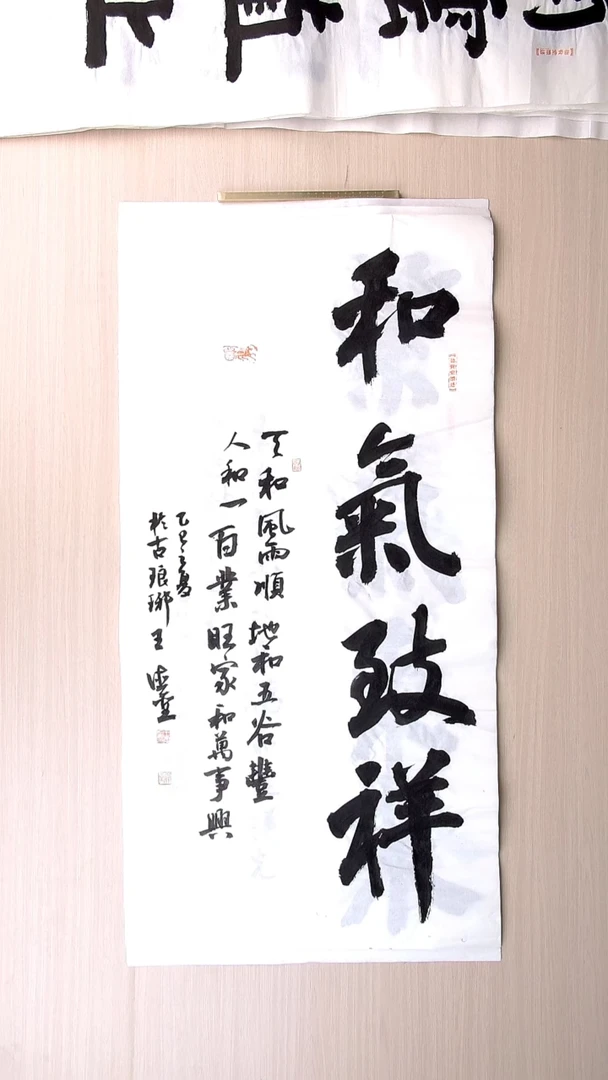 和氣致祥
天和風雨順 地和五谷豐
人和一百業旺家和萬事興
乙巳之夏
於古琅琊王